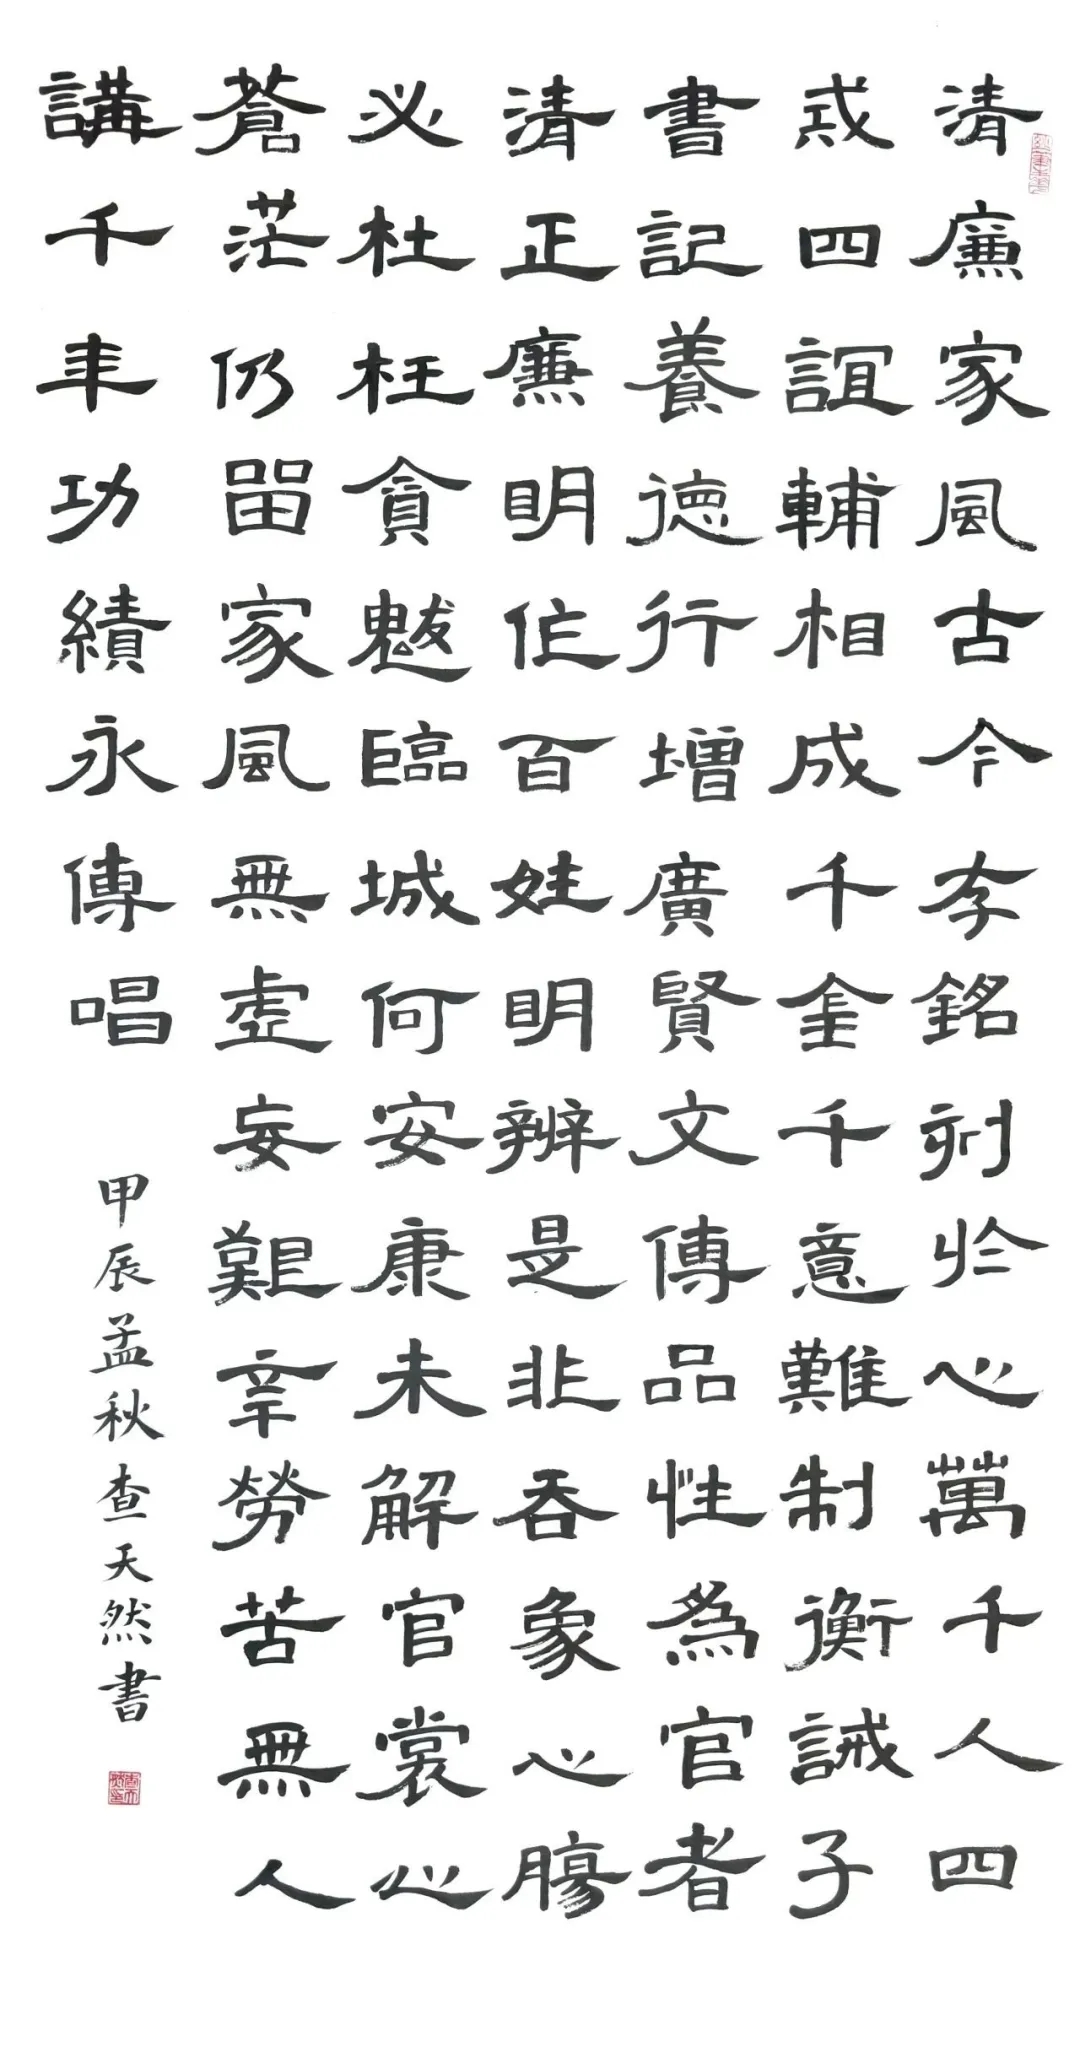 清廉家風古今存銘刻於心萬千人四
戒四誼輔相成千金千意難制衡誡子
書記養德行增廣賢文傳品性為官者
清正廉明作百姓明辨是非吞象心腸
必杜枉貪魃臨城何安康未解官裳心
蒼茫仍留家風無虛妄艱辛勞苦無人
講千年功績永傳唱
甲辰孟秋查天然書